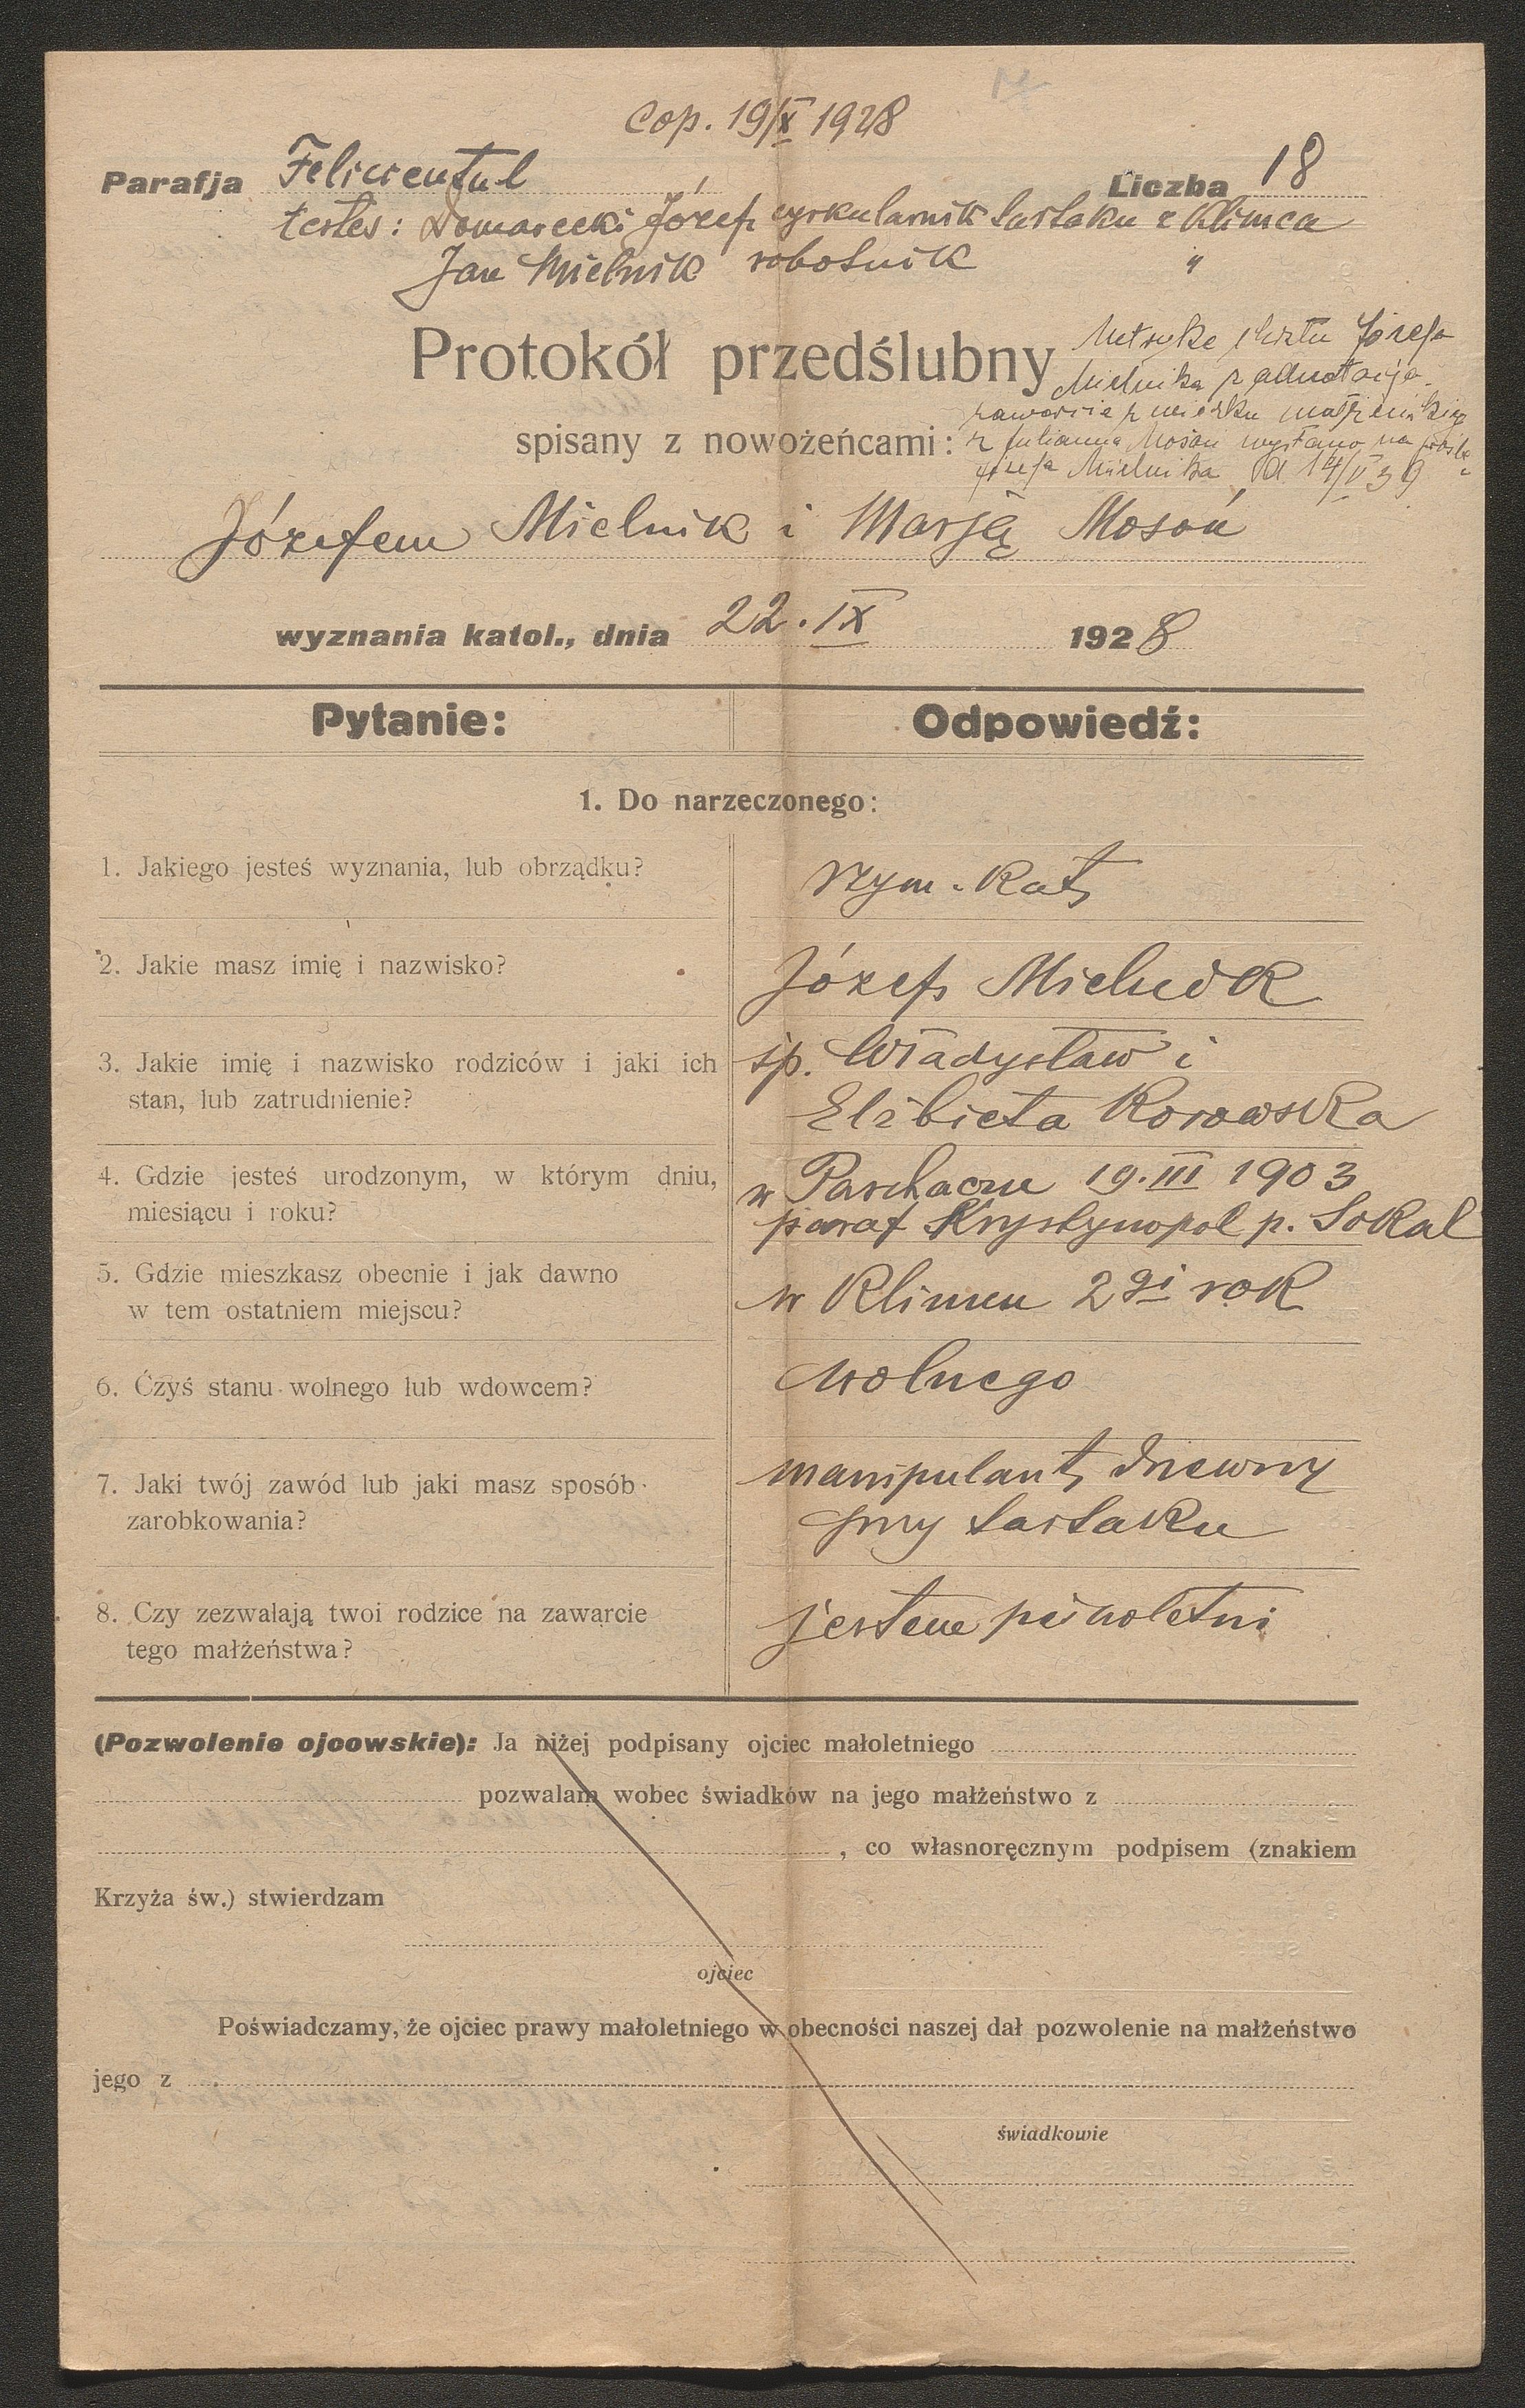 Cop. 19/X 1928
Parafja Felicientul Liczba 18
testes: Domarecki Józef cyrkularnik tartaku z Klimca
Jan Mielnik robotnik "
Protokół przedślubny
Metrykę chrztu Józefa
Mielnika z adnotacją
zawarcia związku małżeńskiego
spisany z nowożeńcami:
z Julianną Mosoń wysłano na prośbę
Józefa Mielnika d 14/V 39
Józefem Mielnik i Marją Mosoń
wyznania katol., dnia 22. IX 1928
Pytanie: Odpowiedź:
1. Do narzeczonego:
1. Jakiego jesteś wyznania, lub obrządku? rzym. kat
2. Jakie masz imię i nazwisko? Józef Mielnik
3. Jakie imię i nazwisko rodziców i jaki ich śp. Władysław i
stan, lub zatrudnienie? Elżbieta
4. Gdzie jesteś urodzonym, w którym dniu, w 19. III 1903
miesiącu i roku? paraf Krystynopol p. Sokal
5. Gdzie mieszkasz obecnie i jak dawno
w tem ostatniem miejscu? w Klimcu 2gi rok
6. Czyś stanu wolnego lub wdowcem? wolnego
7. Jaki twój zawód lub jaki masz sposób manipulant drzewny
zarobkowania? przy tartaku
8. Czy zezwalają twoi rodzice na zawarcie jestem pełnoletni
tego małżeństwa?
(Pozwolenie ojcowskie): Ja niżej podpisany ojciec małoletniego
pozwalam wobec świadków na jego małżeństwo z
, co własnoręcznym podpisem (znakiem
Krzyża św.) stwierdzam
ojciec
Poświadczamy, że ojciec prawy małoletniego w obecności naszej dał pozwolenie na małżeństwo
jego z
świadkowie